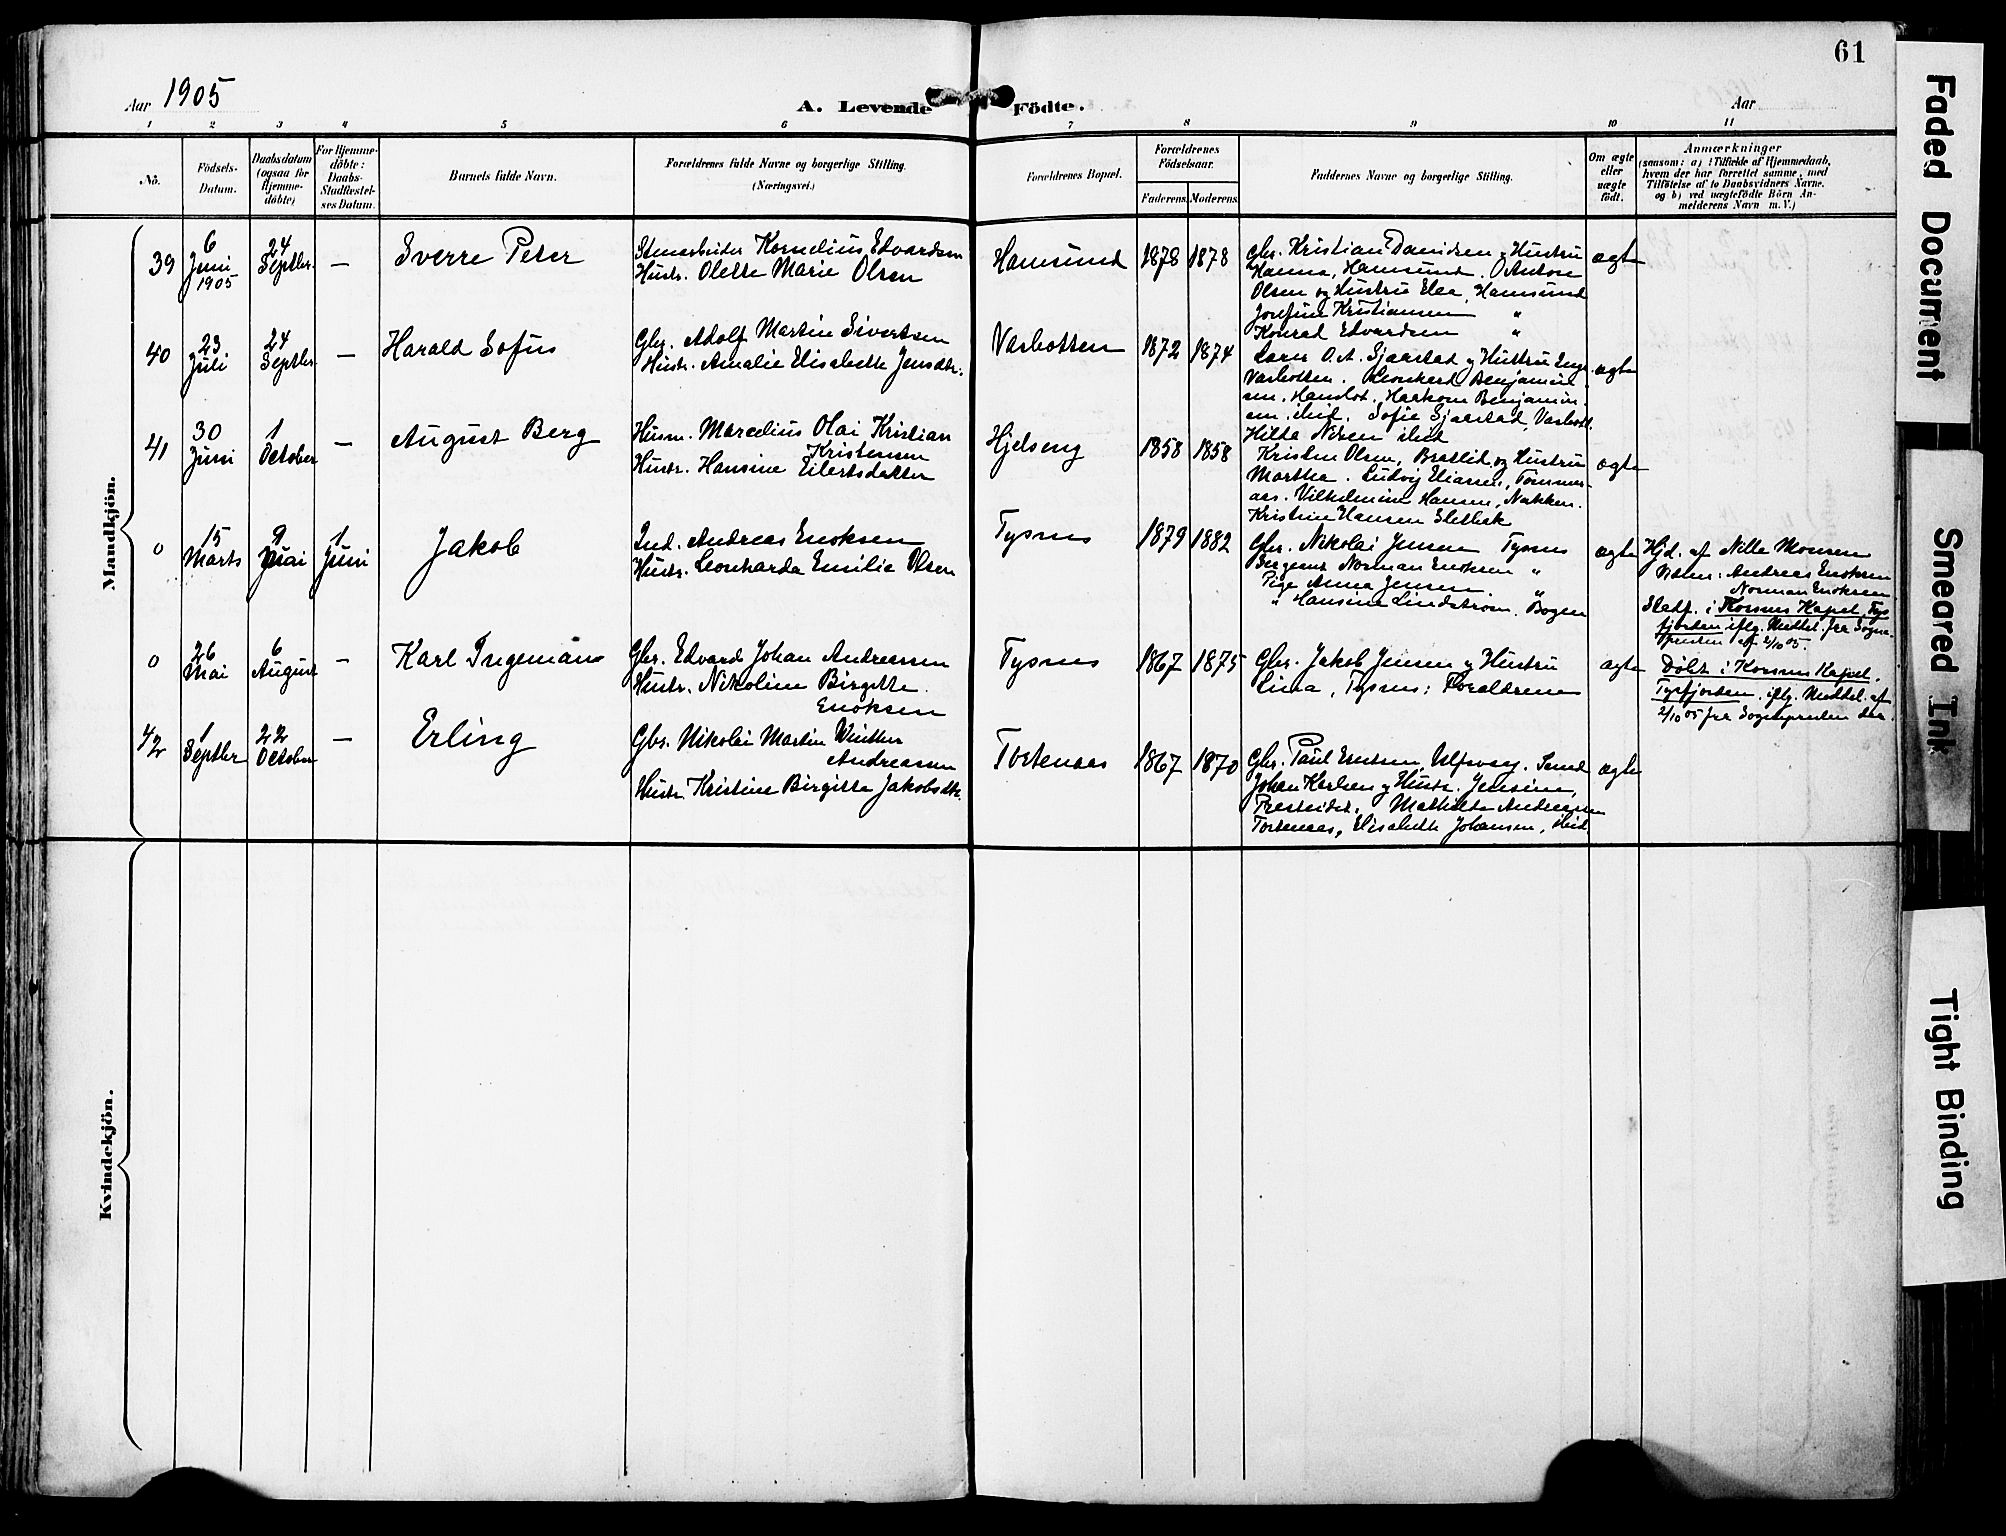 61
Aar 1905
A. Levende Födte.
Aar
1 2 3 4 5 6 7 8 9 10 11
No.
Födsels-
Datum.
Daabsdatum
(ogsaa for
Hjemme-
döbte)
For Hjemme-
döbte:
Daabs-
Stadfæstel-
ses Datum.
Barnets fulde Navn.
Forældrenes fulde Navne og borgerlige Stilling.
(Næringsvei.)
Forældrenes Bopæl.
Forældrenes
Födselsaar.
Faderens Moderens
Faddernes Navne og borgerlige Stilling.
Om ægte
eller
uægte
födt.
Anmærkninger
(saasom: a) i Tilfælde af Hjemmedaab,
hvem der har forrettet samme, med
Tilföielse af to Daabsvidners Navne,
og b) ved uægtefödte Börn An-
melderens Navn m. V.)
Mandkjön.
39
6
Juni
1905
24
Septbr.
—
Sverre Peter
Stenarbeider Kornelius Edvardsen
Hustr. Olette Marie Olsen
Hamsund
1878 1878
Gbr. Kristian Danielsen og Hustru
Hanna, Hamsund. Anton
Olsen og Hustru Elea, Hamsund
Josefine Kristiansen "
Konrad Edvardsen "
ægte
40
23
Juli
24
Septbr
—
Harald Sofus
Gbr. Adolf Martin Sivertsen
Hustr. Amalie Elisabeth Jensdtr.
Varbotten
1872 1874
Lærer O. A. Sjaastad og Hustru
Varbotten. Leonhard Benjamin-
sen, Haakon Benjamin-
sen, ibid. Sofie Sjaastad, Varbott.
Hilda ibid
ægte
41
30
Juni
1
October
—
August Berg
Husm. Marcelius Olai Kristian
Kristensen
Hustr. Hansine Eilertsdatter
Hjelseng
1858 1858
Kristen Olsen, Bratlid, og Hustru
Martha. Ludvig Eliassen, Tömmer-
aas. Vilhelmine Hansen, Nakken.
Kristine Hansen
ægte
0
15
Marts
9
Juni
1
Juni
Jakob
Ind. Andreas Enoksen
Hustr. Leonharda Emilie Olsen
Tysnes
1879 1882
Gbr. Nikolai Jensen Tysnes
Norman Enoksen "
Pige Anna Jensen "
" Hansine Lindström, Bogen
ægte
Hjd. af Nille Monsen
Vidner: Andreas Enoksen
Norman Enoksen
Stadf. i Korsnes Kapel, Tys
fjorden iflg. Meddel. fra Sogne-
præsten af 2/10 05.
0
26
Mai
6
August
—
Karl Ingeman
Gbr. Edvard Johan Andreassen
Hustr. Nikoline Birgitte
Enoksen
Tysnes
1867 1875
Gbr. Jakob Jensen og Hustru
Lina, Tysnes: Forældrene
ægte
Döbt i Korsnes Kapel,
Tysfjorden, iflg. Meddel. af
2/10 05 fra Sognepræsten der.
42
1
Septbr
22
October
—
Erling
Gbr. Nikolai Martin Winther
Andreassen
Hustr. Kristine Birgitte Jakobsdtr.
Tortenaas
1867 1870
Gbr. Paul Ulfsvaag. Samt
Johan Karlsen og Hustr. Jensine,
Presteidet. Mathilde Andreassen
Tortenaas, Elisabeth Johansen, ibid.
ægte
Kvindekjön.
Faded Document
Smeared Ink
Tight Binding